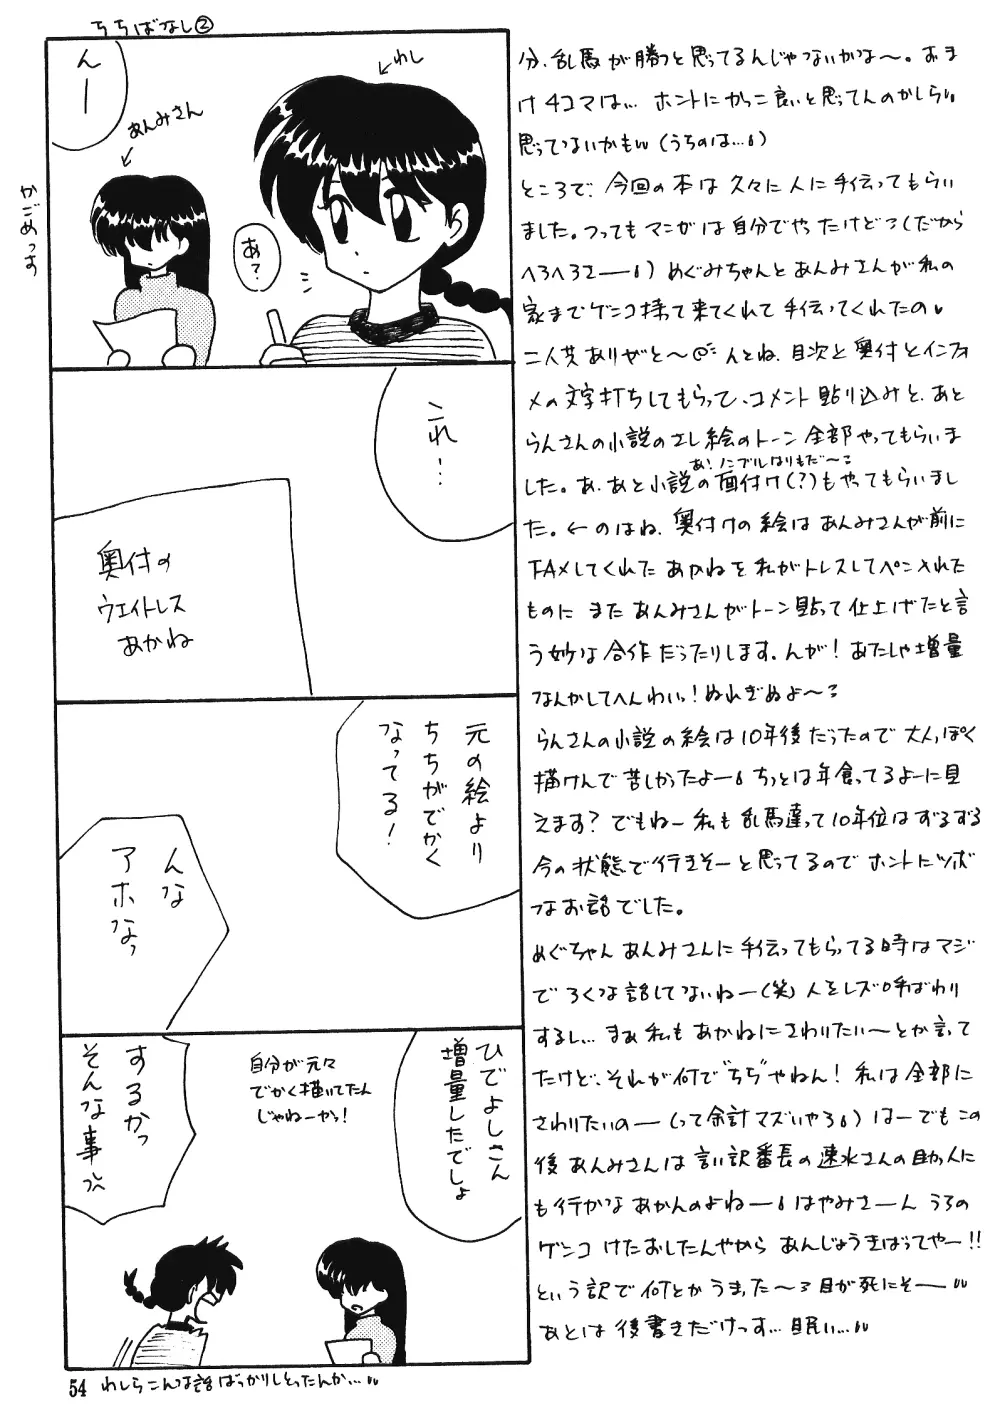 ちちばなし②
んー
←わし
あんみさん
かごめっす
あ?
これ…
奥付の
ウエイトレス
あかね
元の絵より
ちちがでかく
なってる!
んな
アホなっ
ひでよしさん
増量したでしょ
自分が元々
でかく描いてたん
じゃねーかっ!
するかっ
そんな事っ
54 わしらこんな話ばっかりしとったんか…
分、乱馬が勝つと思ってるんじゃないかな〜。おま
け4コマは… ホントにかっこ良いと思ってんのかしら
思ってないかも(うちのは…)
ところで、今回の本は久々に人に手伝ってもらい
ました。つってもマンガは自分でやったけど(だから
へろへろさー)めぐみちゃんとあんみさんが私の
家までゲンコ持って来てくれて手伝ってくれたの
二人共ありがと〜 んとね、目次と奥付とインフォ
メの文字打ちしてもらって、コメント貼り込みと、あと
らんさんの小説のさし絵のトーン全部やってもらいま
あ!ノンブルはりもだ〜
した。あ、あと小説の面付け(?)もやってもらいまし
た。←のはね、奥付けの絵はあんみさんが前に
FAXしてくれたあかねを私がトレスしてペン入れた
ものに またあんみさんがトーン貼って仕上げたと言
う妙な合作だったりします。んが!あたしゃ増量
なんかしてへんわいっ!ぬれぎぬよ〜
らんさんの小説の絵は10年後だったので大人っぽく
描けんで苦しかったよー ちっとは年食ってるよーに見
えます?でもねー私も乱馬達って10年位はずるずる
今の状態で行きそーと思ってるのでホントにツボ
なお話でした。
めぐちゃんあんみさんに手伝ってもらってる時はマジ
でろくな話してないねー(笑)人をレズ呼ばわり
するし… まあ私もあかねにさわりたい〜とか言って
たけど、それが何で“ちち”やねん!私は全部に
さわりたいのー(って余計マズいやろ)はーでもこの
後あんみさんは言い訳番長の速水さんの助っ人に
も行かなあかんのよねー はやみさーん うちの
ゲンコ けたおしたんやから あんじょうきばってやー!!
という訳で何とかうまった〜 目が死にそー
あとは後書きだけっす… 眠い…